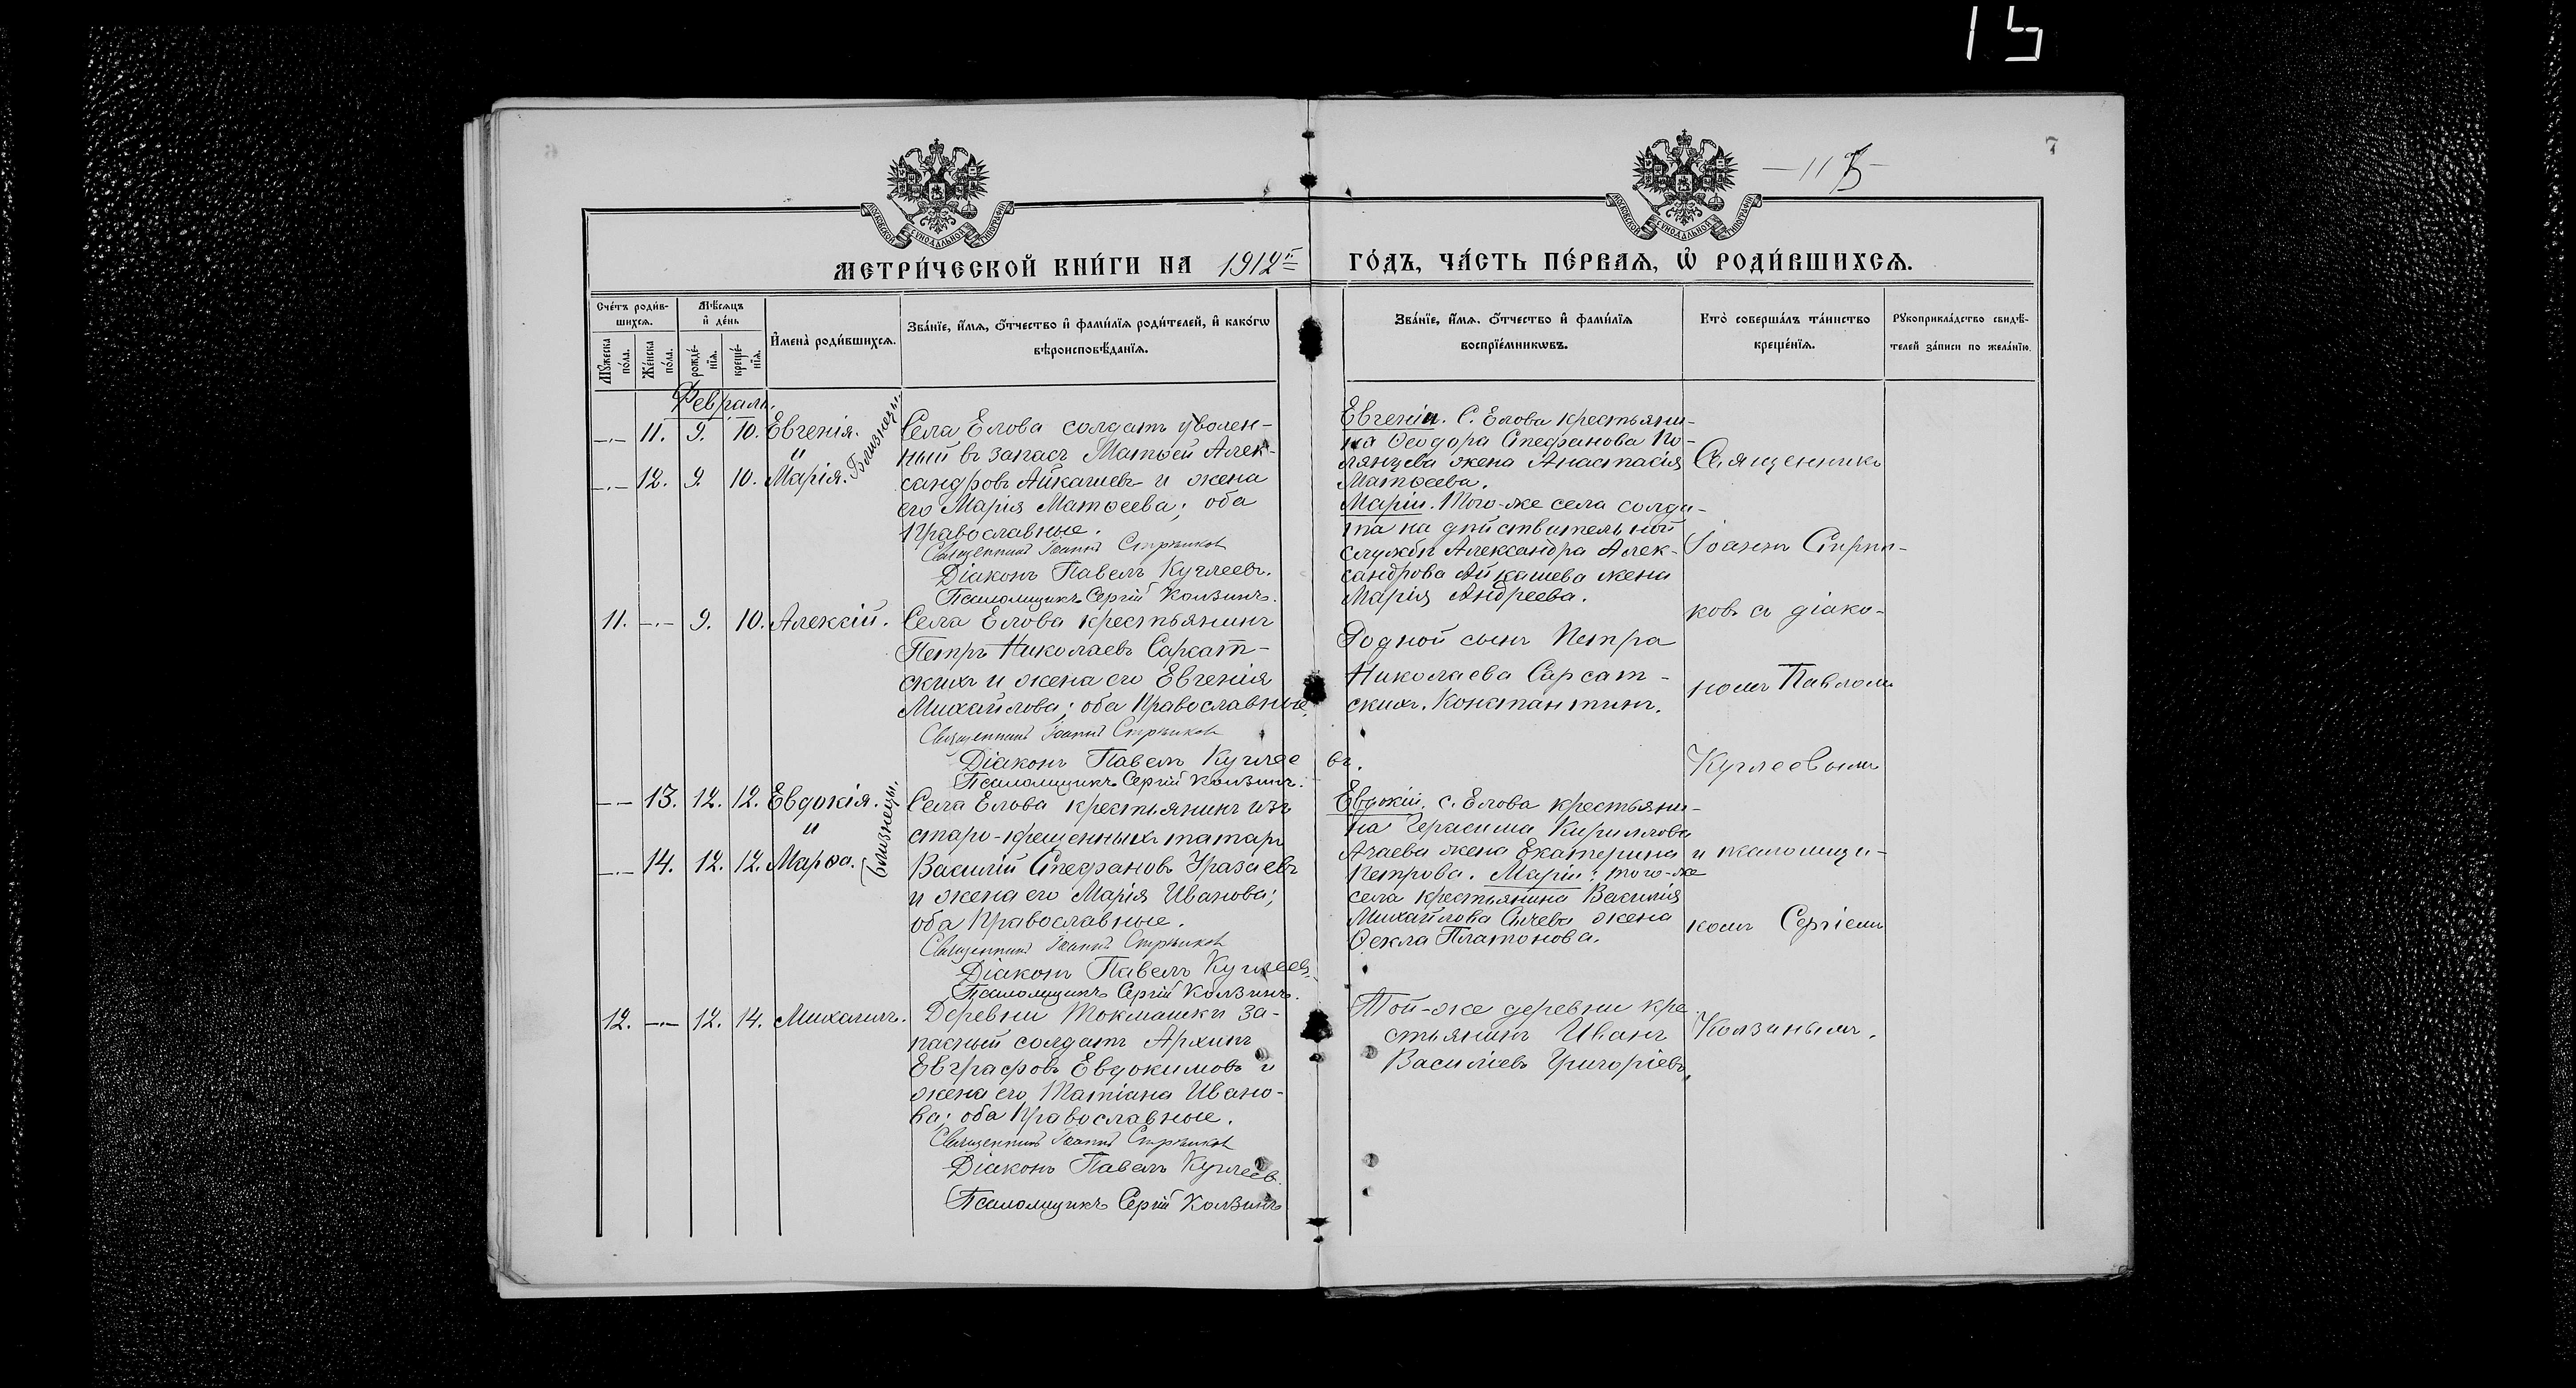 15
6
7
— 115 —
МОСКОВСКОЙ СѴНОДАЛЬНОЙ ТИПОГРАФІИ
МОСКОВСКОЙ СѴНОДАЛЬНОЙ ТИПОГРАФІИ
МЕТРИ́ЧЕСКОЙ КНИ́ГИ НА 1912й ГО́ДЪ, ЧА́СТЬ ПЕ́РВАѦ, Ѡ҆ РОДИ́ВШИХСѦ.
Сче́тъ роди́в-
шихсѧ.
Мꙋ́жеска по́ла.
Же́нска по́ла.
Мѣ́сѧцъ
и҆ де́нь
рожде́-
нїѧ.
креще́-
нїѧ.
И҆мена̀ роди́вшихсѧ.
Зва́нїе, и҆́мѧ, ѻ҆́тчество и҆ фами́лїѧ роди́телей, и҆ како́гѡ
вѣроисповѣ́данїѧ.
Зва́нїе, и҆́мѧ, ѻ҆́тчество и҆ фами́лїѧ
воспрїе́мникѡвъ.
Кто̀ соверша́лъ та́инство
креще́нїѧ.
Рꙋкоприкла́дство свидѣ́-
телей за́писи по жела́нїю.
Февраль.
—.— 11. 9. 10. Евгенія.
"
—.— 12. 9 10. Марія. Близнецы.
Села Елова солдатъ уволен-
ный въ запасъ Матѳей Алек-
сандровъ Айкашевъ и жена
его Марія Матѳеева; оба
православные.
Священникъ Іоаннъ Стрѣлковъ
Діаконъ Павелъ Кугреевъ.
Псаломщикъ Сергій Колзинъ.
Евгеніи. С. Елова крестьяни-
на Ѳеодора Стефанова По-
лянцева жена Анастасія
Матѳеева.
Маріи. Того-же села солда-
та на дѣйствительной
службѣ Александра Алек-
сандрова Айкашева жена
Марія Андреева.
11. —.— 9. 10. Алексій.
Села Елова крестьянинъ
Петръ Николаевъ Сарсат-
скихъ и жена его Евгенія
Михайлова; оба православные.
Священникъ Іоаннъ Стрѣлковъ
Діаконъ Павелъ Кугреевъ.
Псаломщикъ Сергій Колзинъ.
Родной сынъ Петра
Николаева Сарсат-
скихъ. Константинъ.
— — 13. 12. 12. Евдокія.
"
—.— 14. 12. 12. Марѳа. близнецы.
Села Елова крестьянинъ изъ
старо-крещенныхъ татаръ
Василій Стефановъ Уразаевъ
и жена его Марія Иванова;
оба православные.
Священникъ Іоаннъ Стрѣлковъ
Діаконъ Павелъ Кугреевъ.
Псаломщикъ Сергій Колзинъ.
Евдокіи. с. Елова крестьяни-
на Герасима Кириллова
Агаева жена Екатерина
Петрова. Маріи: того-же
села крестьянина Василія
Михайлова Сычева жена
Ѳекла Платонова.
12. —.— 12. 14. Михаилъ.
Деревни Токмашки за-
пасный солдатъ Архипъ
Евграфовъ Евдокимовъ и
жена его Татіана Ивано-
ва; оба православные.
Священникъ Іоаннъ Стрѣлковъ
Діаконъ Павелъ Кугреевъ.
Псаломщикъ Сергій Колзинъ
Той-же деревни кре
стьянинъ Иванъ
Василіевъ Григоріевъ.
Священникъ
Іоаннъ Стрѣл-
ковъ съ діако-
номъ Павломъ
Кугреевымъ
и псаломщи-
комъ Сергіемъ
Колзинымъ.